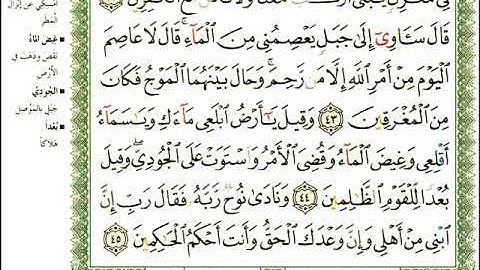 قَالَ سَـَٔاوِىٓ إِلَىٰ جَبَلٍ يَعْصِمُنِى مِنَ ٱلْمَآءِ ۚ قَالَ لَا عَاصِمَ
ٱلْيَوْمَ مِنْ أَمْرِ ٱللَّهِ إِلَّا مَن رَّحِمَ ۚ وَحَالَ بَيْنَهُمَا ٱلْمَوْجُ فَكَانَ
مِنَ ٱلْمُغْرَقِينَ ٤٣ وَقِيلَ يَـٰٓأَرْضُ ٱبْلَعِى مَآءَكِ وَيَـٰسَمَآءُ
أَقْلِعِى وَغِيضَ ٱلْمَآءُ وَقُضِىَ ٱلْأَمْرُ وَٱسْتَوَتْ عَلَى ٱلْجُودِىِّ ۖ وَقِيلَ
بُعْدًا لِّلْقَوْمِ ٱلظَّـٰلِمِينَ ٤٤ وَنَادَىٰ نُوحٌ رَّبَّهُۥ فَقَالَ رَبِّ إِنَّ
ٱبْنِى مِنْ أَهْلِى وَإِنَّ وَعْدَكَ ٱلْحَقُّ وَأَنتَ أَحْكَمُ ٱلْحَـٰكِمِينَ ٤٥
أمسكي عن إنزال
المطر
■ غِيضَ الماءُ
نقص وذهب في
الأرض
■ الجُوديّ
جبل بالموصل
■ بُعْداً
هلاكاً